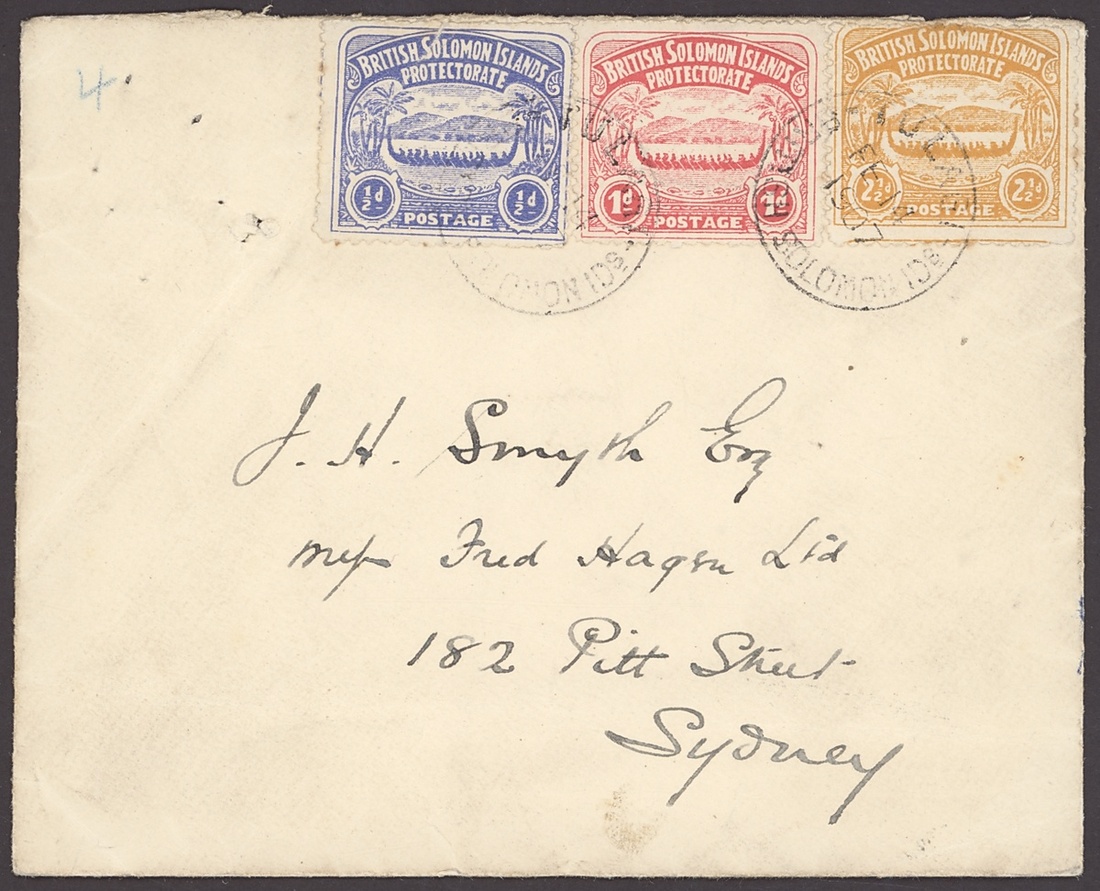 4
BRITISH SOLOMON ISLANDS
PROTECTORATE
½d ½d
POSTAGE
BRITISH SOLOMON ISLANDS
PROTECTORATE
1d
POSTAGE
BRITISH SOLOMON ISLANDS
PROTECTORATE
2½d 2½d
POSTAGE
TULAGI
SOLOMON IDS
TULAGI
FE 14
1907
SOLOMON IDS
J. H. Smyth Esq
Fred Hagen Ltd
182 Pitt Street
Sydney